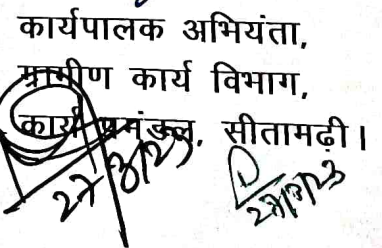 कार्यपालक अभियंता,
ग्रामीण कार्य विभाग,
कार्य प्रमंडल, सीतामढ़ी।
27/3/23
27/3/23